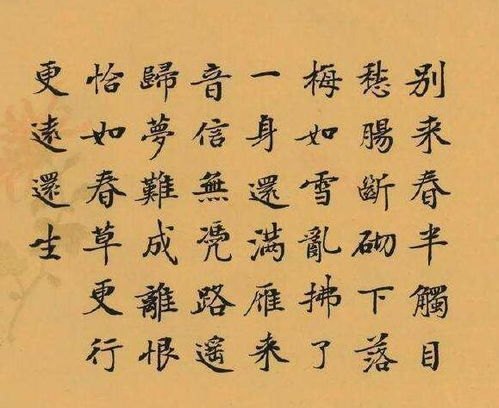 別来春半觸目
愁腸斷砌下落
梅如雪亂拂了
一身還滿雁来
音信無凴路遙
歸夢難成離恨
恰如春草更行
更遠還生